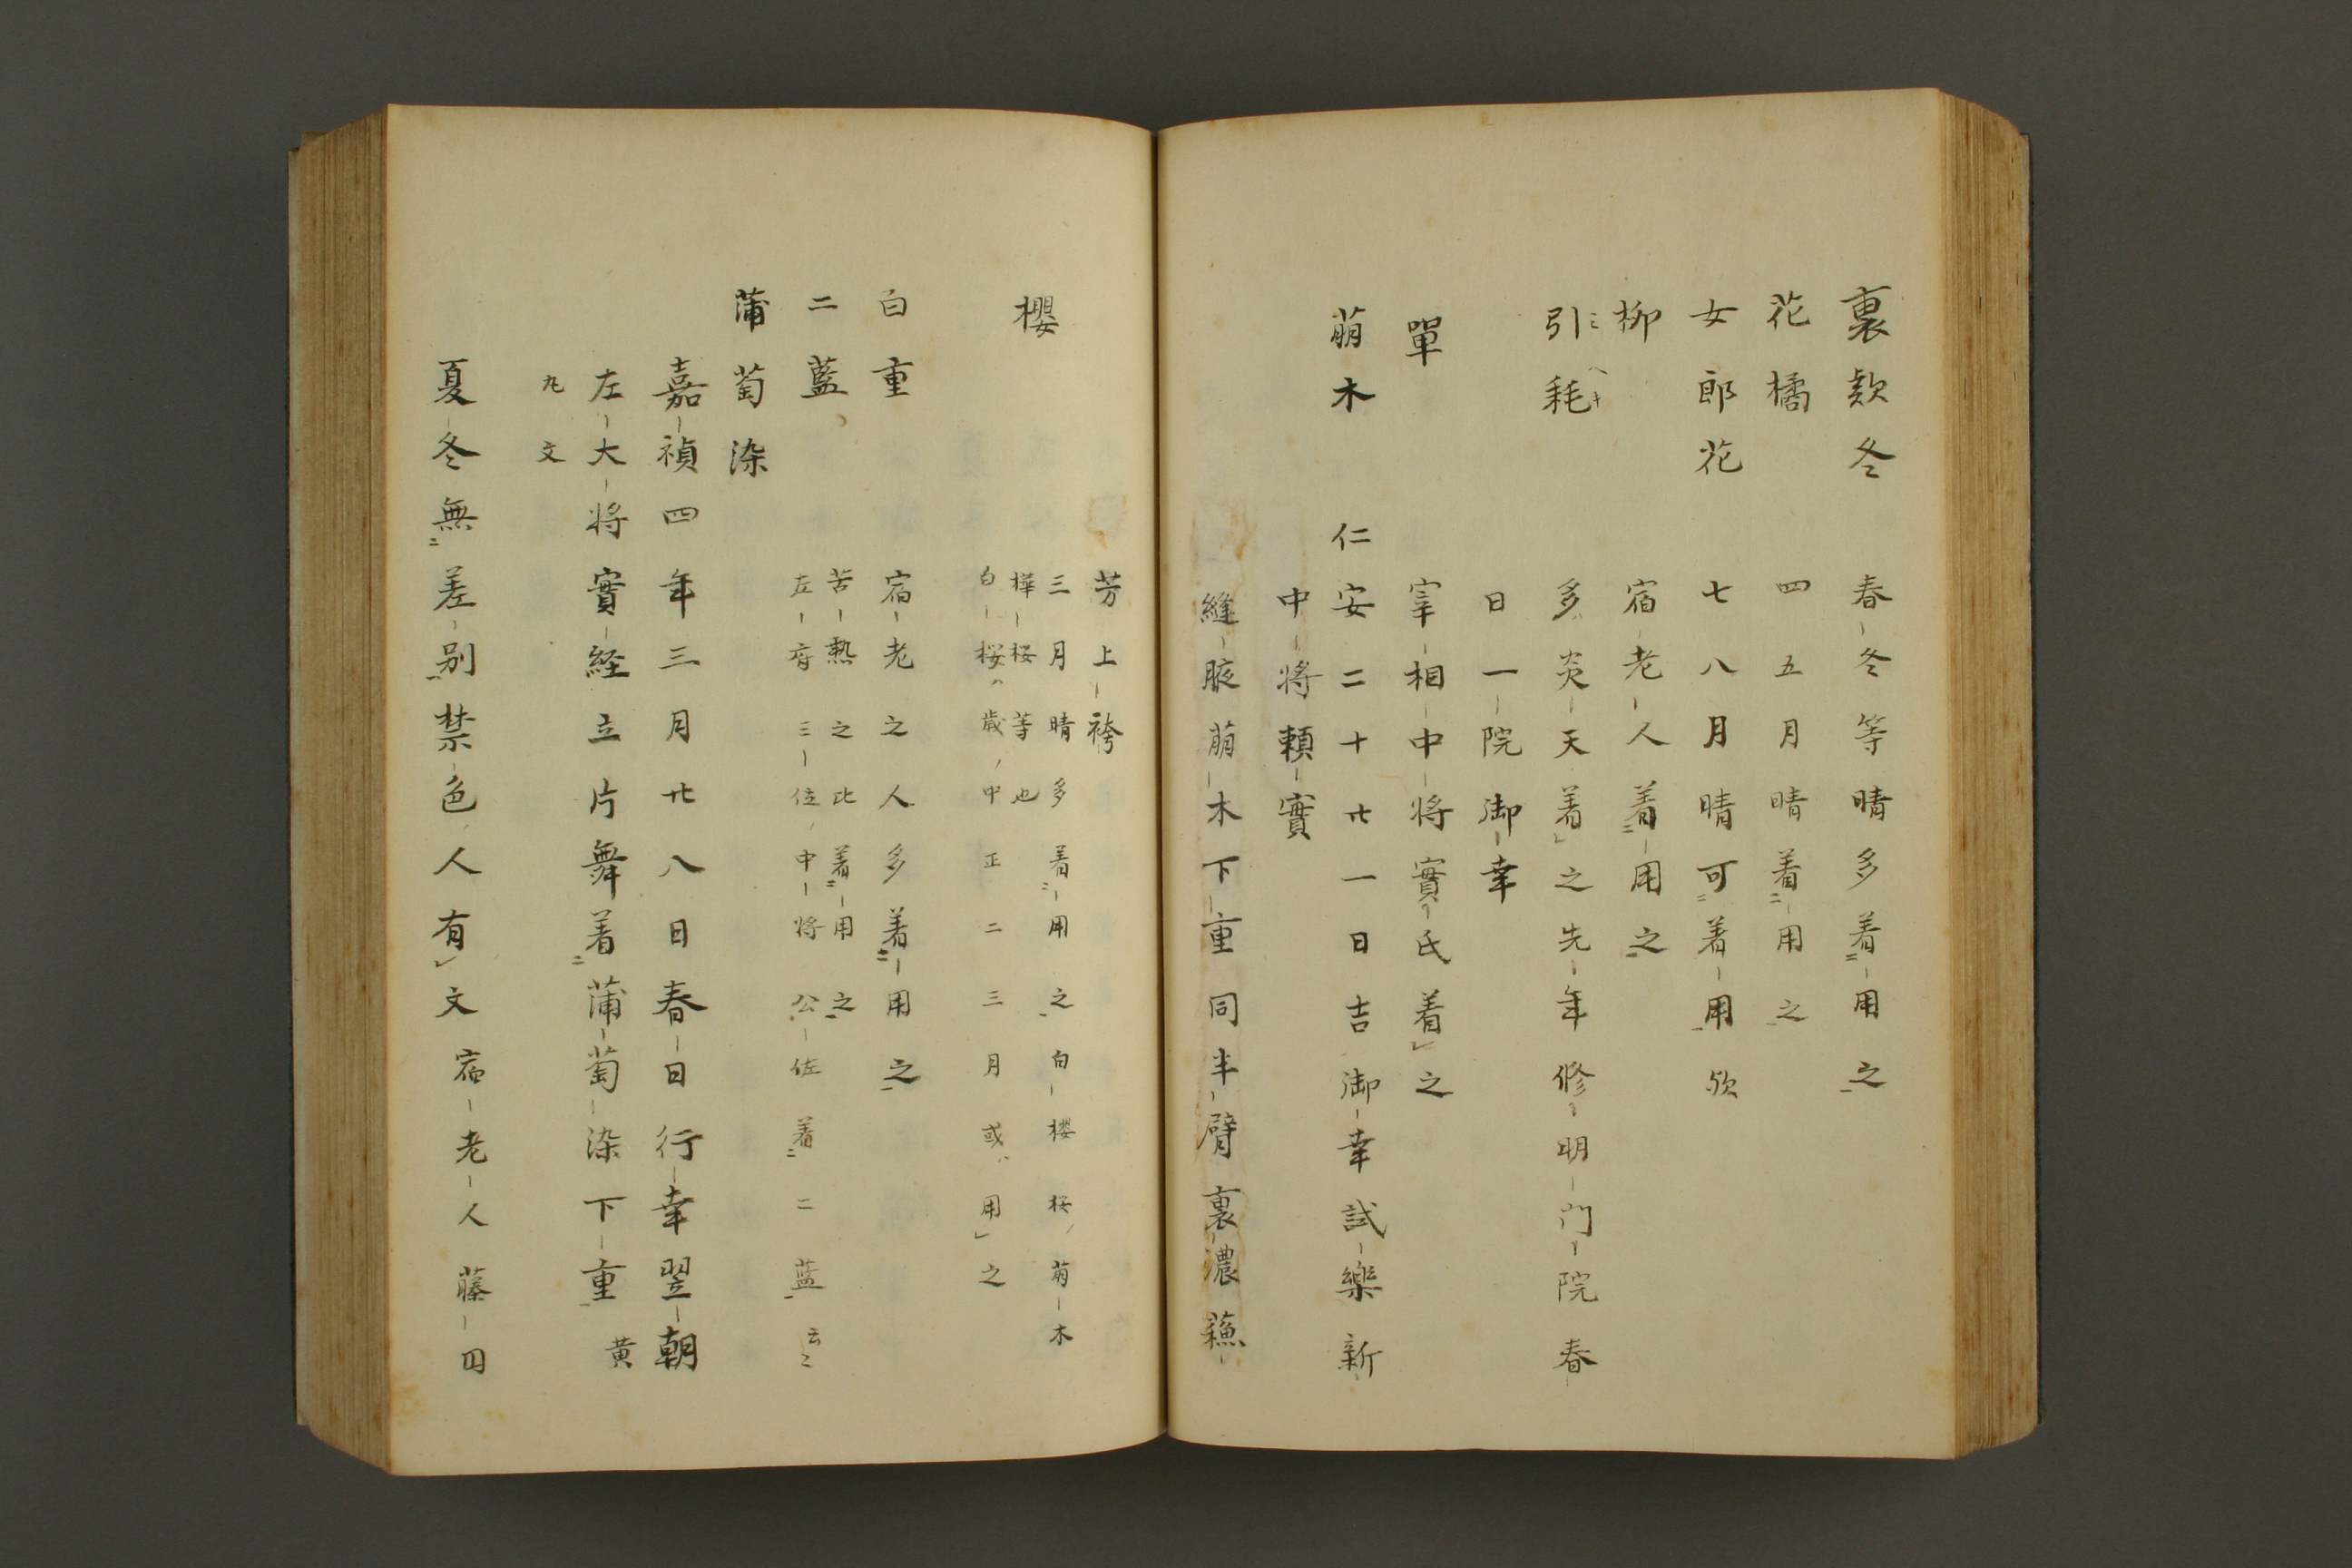 裏款冬 春冬等晴多着用之
花橘 四五月晴着用之
女郎花 七八月晴可着用欤
柳 宿老人着用之
引耗 多炎天着之先年修明門院春
日一院御幸
單 宰相中将實氏着之
萌木 仁安二十廿一日吉御幸試樂新
中将頼實
縫腋萌木下重同半臂裏濃蘓
芳上袴
櫻 三月晴多着用之白櫻桜萌木
樺桜等也
白桜歳中正二三月或用之
白重 宿老之人多着用之
二藍 苦熱之比着用之
左府三位中将公佐着二藍云〻
蒲萄染
嘉禎四年三月廿八日春日行幸翌朝
左大将實経立片舞着蒲萄染下重黄
丸文
夏冬無差别禁色人有文宿老人藤田